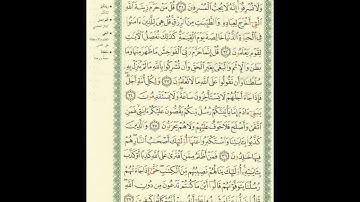 وَلَا تُسْرِفُوٓا۟ إِنَّهُۥ لَا يُحِبُّ ٱلْمُسْرِفِينَ ٣١ قُلْ مَنْ حَرَّمَ زِينَةَ ٱللَّهِ
ٱلَّتِىٓ أَخْرَجَ لِعِبَادِهِۦ وَٱلطَّيِّبَـٰتِ مِنَ ٱلرِّزْقِ قُلْ هِىَ لِلَّذِينَ ءَامَنُوا۟
فِى ٱلْحَيَوٰةِ ٱلدُّنْيَا خَالِصَةً يَوْمَ ٱلْقِيَـٰمَةِ كَذَٰلِكَ نُفَصِّلُ ٱلْـَٔايَـٰتِ
لِقَوْمٍ يَعْلَمُونَ ٣٢ قُلْ إِنَّمَا حَرَّمَ رَبِّىَ ٱلْفَوَٰحِشَ مَا ظَهَرَ مِنْهَا وَمَا
بَطَنَ وَٱلْإِثْمَ وَٱلْبَغْىَ بِغَيْرِ ٱلْحَقِّ وَأَن تُشْرِكُوا۟ بِٱللَّهِ مَا لَمْ يُنَزِّلْ بِهِۦ
سُلْطَـٰنًا وَأَن تَقُولُوا۟ عَلَى ٱللَّهِ مَا لَا تَعْلَمُونَ ٣٣ وَلِكُلِّ أُمَّةٍ أَجَلٌ
فَإِذَا جَآءَ أَجَلُهُمْ لَا يَسْتَأْخِرُونَ سَاعَةً وَلَا يَسْتَقْدِمُونَ ٣٤
يَـٰبَنِىٓ ءَادَمَ إِمَّا يَأْتِيَنَّكُمْ رُسُلٌ مِّنكُمْ يَقُصُّونَ عَلَيْكُمْ ءَايَـٰتِى فَمَنِ
ٱتَّقَىٰ وَأَصْلَحَ فَلَا خَوْفٌ عَلَيْهِمْ وَلَا هُمْ يَحْزَنُونَ ٣٥ وَٱلَّذِينَ
كَذَّبُوا۟ بِـَٔايَـٰتِنَا وَٱسْتَكْبَرُوا۟ عَنْهَآ أُو۟لَـٰٓئِكَ أَصْحَـٰبُ ٱلنَّارِ هُمْ
فِيهَا خَـٰلِدُونَ ٣٦ فَمَنْ أَظْلَمُ مِمَّنِ ٱفْتَرَىٰ عَلَى ٱللَّهِ كَذِبًا أَوْ كَذَّبَ
بِـَٔايَـٰتِهِۦٓ أُو۟لَـٰٓئِكَ يَنَالُهُمْ نَصِيبُهُم مِّنَ ٱلْكِتَـٰبِ حَتَّىٰٓ إِذَا جَآءَتْهُمْ
رُسُلُنَا يَتَوَفَّوْنَهُمْ قَالُوٓا۟ أَيْنَ مَا كُنتُمْ تَدْعُونَ مِن دُونِ ٱللَّهِ